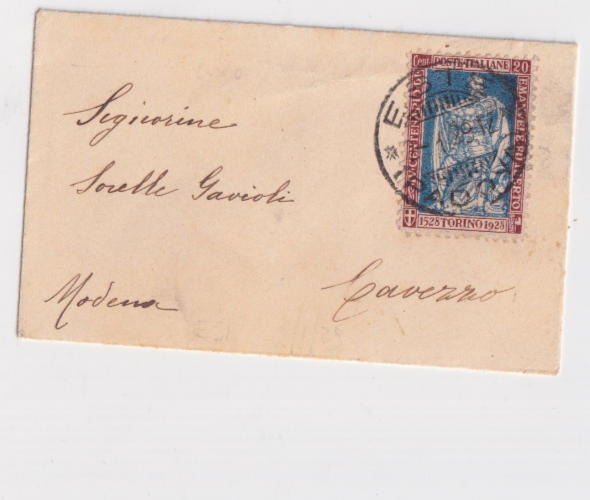 Sigiorine
Sorelle Gavioli
Modena
Cavezzo
Cent POSTE ITALIANE 20
EMANUELE FILIBERTO
IV CENTENARIO DI
1528 TORINO 1928